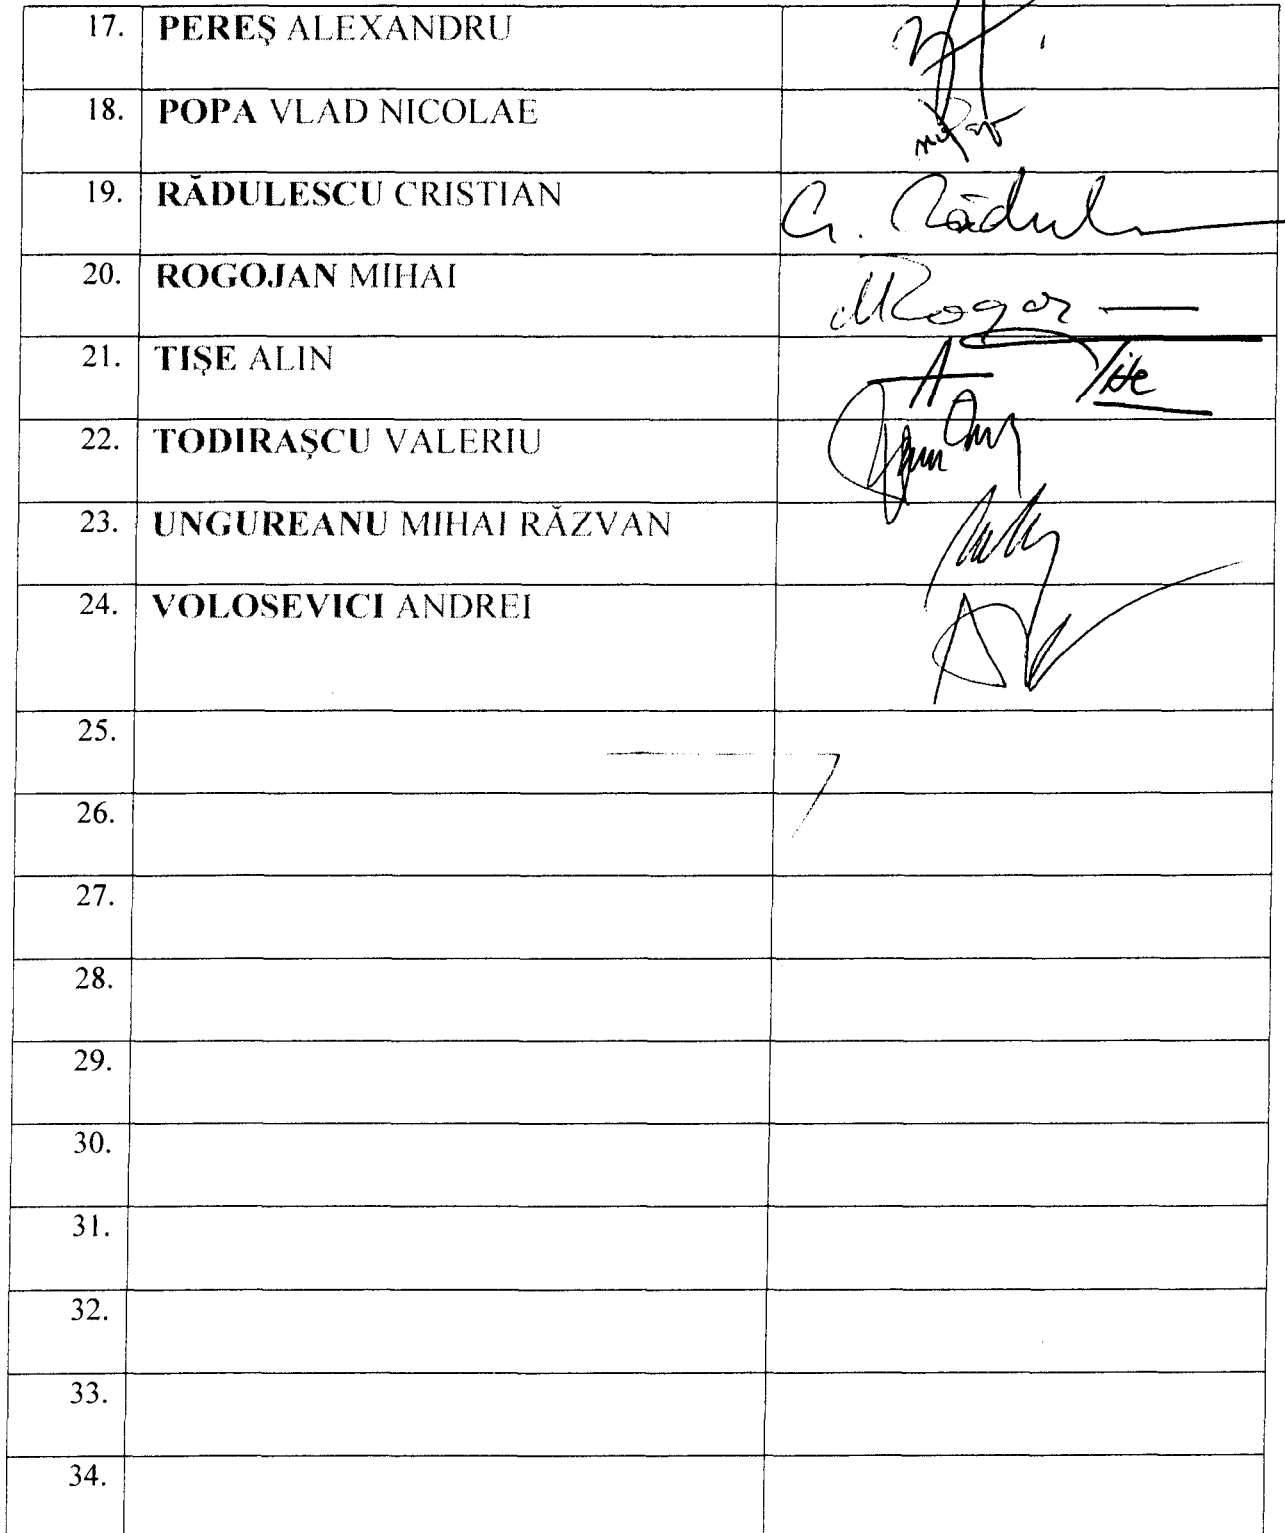 17. PEREȘ ALEXANDRU
18. POPA VLAD NICOLAE
19. RĂDULESCU CRISTIAN
20. ROGOJAN MIHAI
21. TIȘE ALIN
22. TODIRAȘCU VALERIU
23. UNGUREANU MIHAI RĂZVAN
24. VOLOSEVICI ANDREI
25.
26.
27.
28.
29.
30.
31.
32.
33.
34.